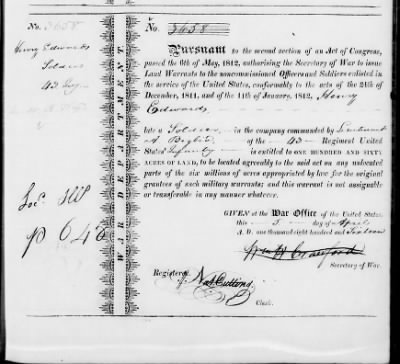 No. 3658
Henry Edwards
Soldier
43 Infy
WAR DEPARTMENT.
No. 3658
Pursuant to the second section of an Act of Congress,
passed the 6th of May, 1812, authorising the Secretary of War to issue
Land Warrants to the noncommissioned Officers and Soldiers enlisted in
the service of the United States, conformably to the acts of the 24th of
December, 1811, and of the 11th of January, 1812, Henry
Edwards
late a Soldier in the company commanded by Lieutenant
A. of the 43 Regiment United
States Infantry is entitled to ONE HUNDRED AND SIXTY
ACRES OF LAND, to be located agreeably to the said act on any unlocated
parts of the six millions of acres appropriated by law for the original
grantees of such military warrants; and this warrant is not assignable
or transferable in any manner whatever.
GIVEN at the War Office of the United States,
this 5 day of April
A. D. one thousand eight hundred and Sixteen
Wm H Crawford
Secretary of War.
Registered
Clerk.
p 648